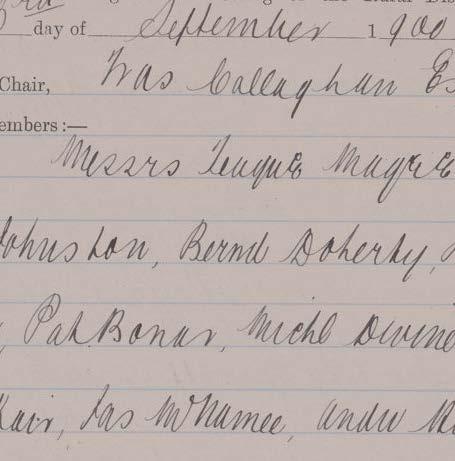 day of September 1900
Chair, Fras Callaghan Es
embers :—
Messrs Teague Magee
Johnston, Bernd Doherty,
Pat Bonar, Michl Devine
Kair, Jas McNamee, Andw